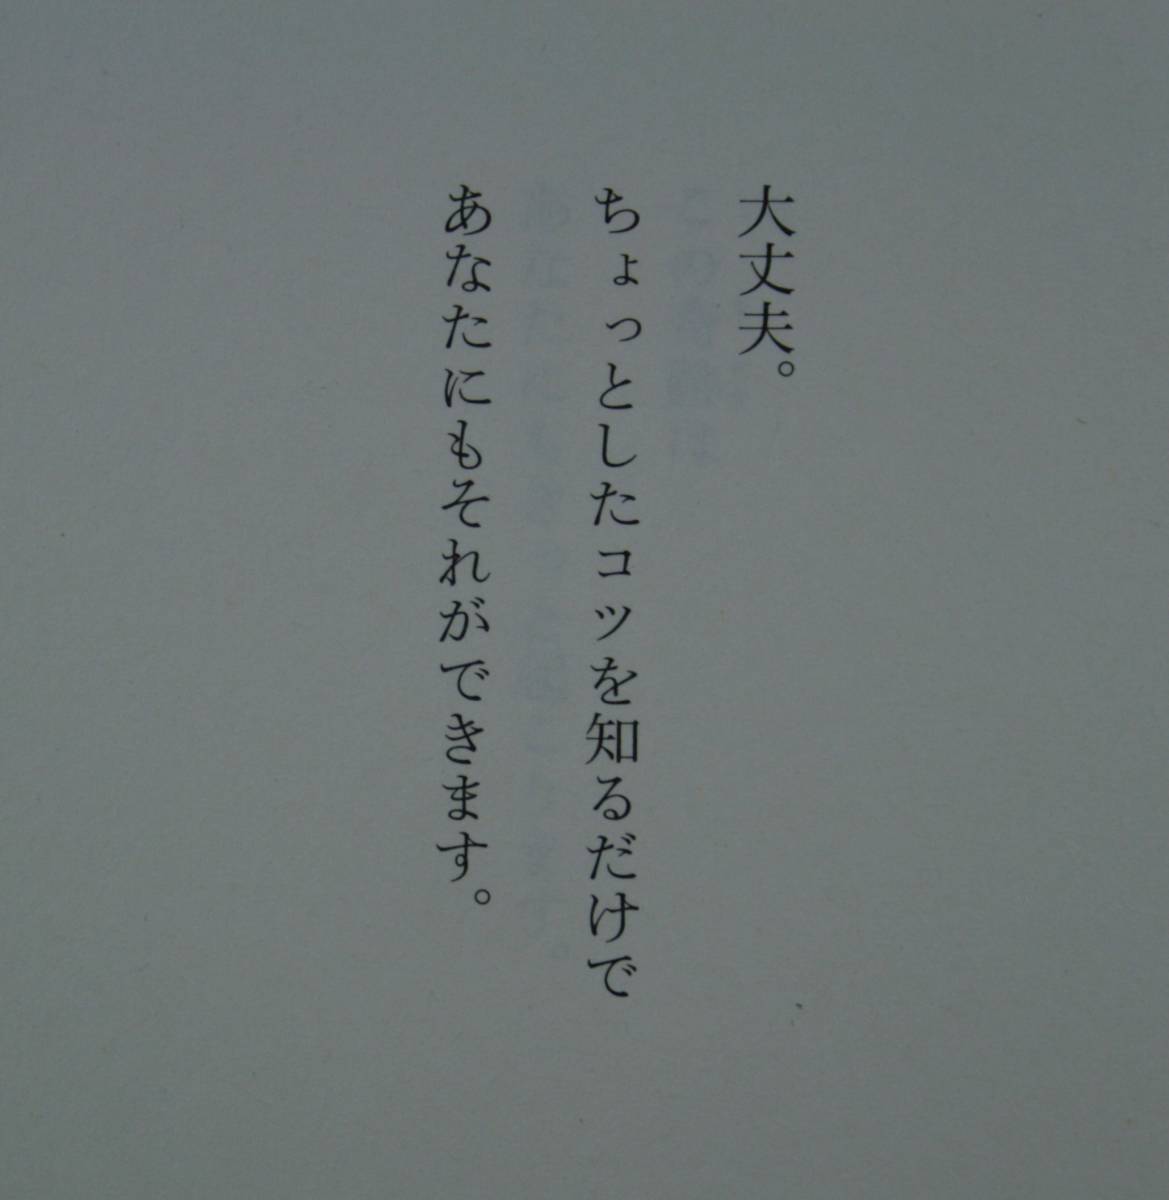 大丈夫。
ちょっとしたコツを知るだけで
あなたにもそれができます。